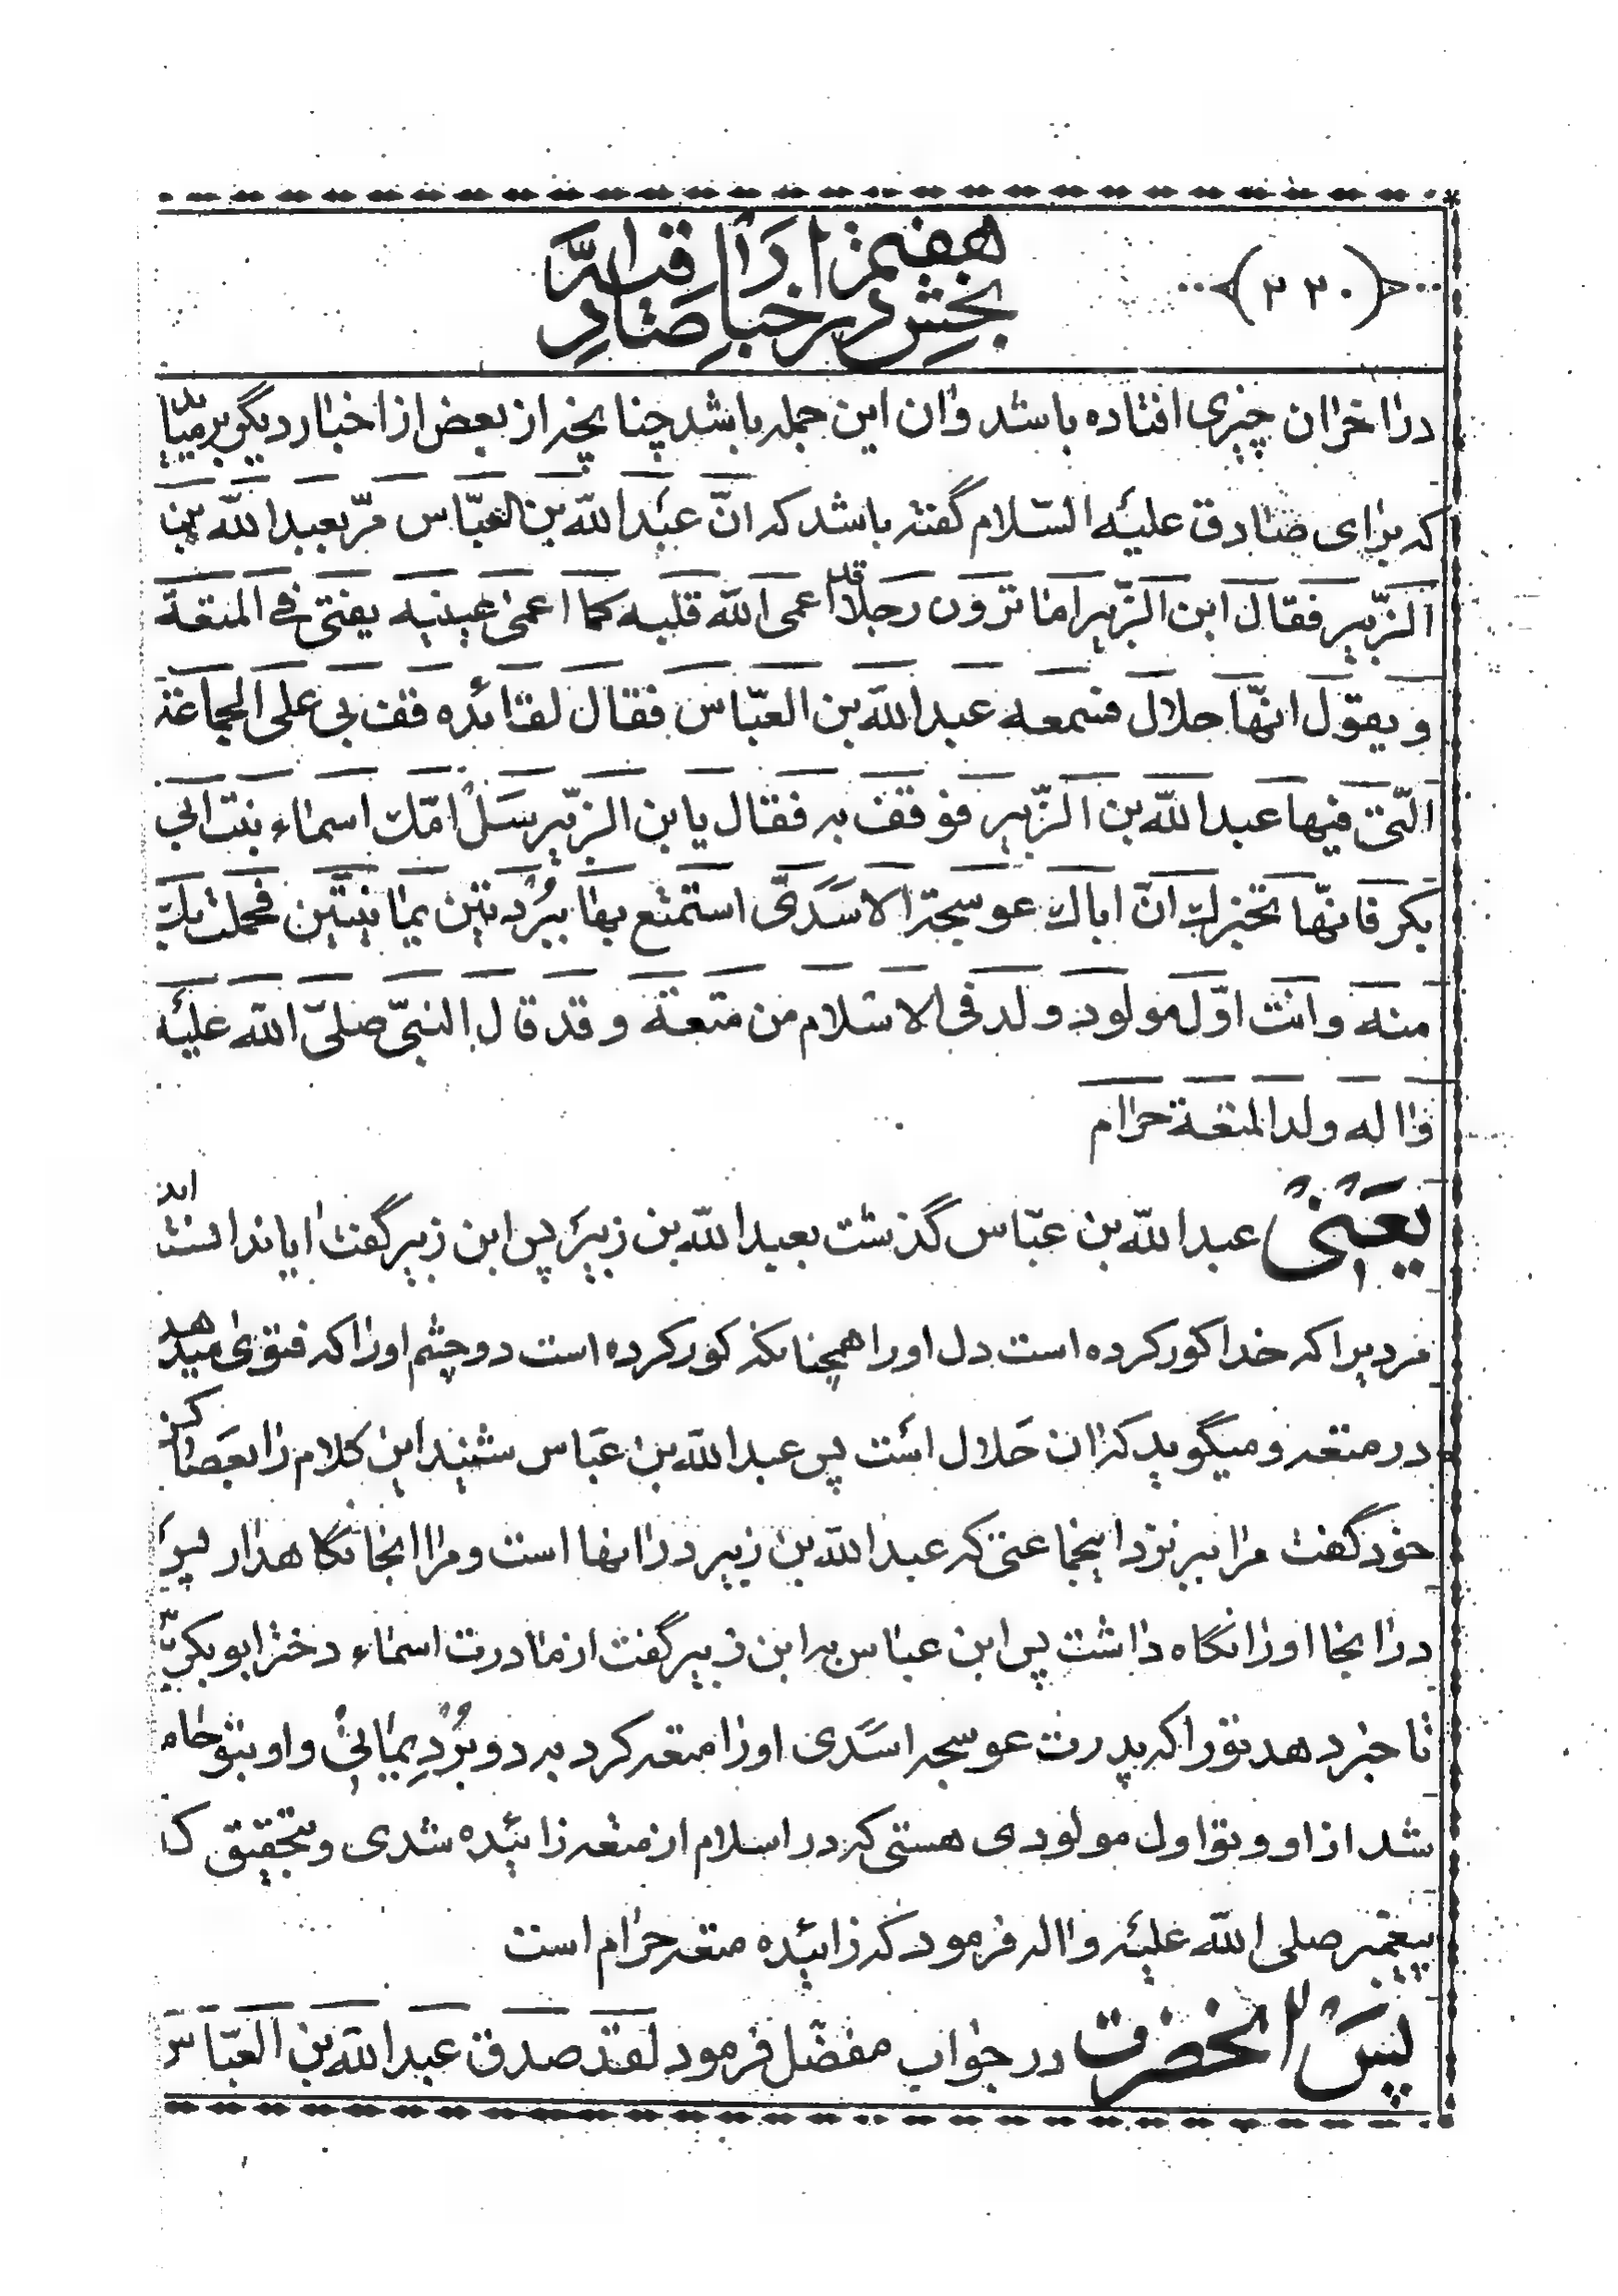 ﴿۲۲۰﴾
بخش هفتم در اخبار صادقیه
در اخر ان چیزی افتاده باشد و ان این جمله باشد چنانچه از بعض از اخبار دیگر برمیاید
که برای صادق علیه السّلام گفته باشد که انّ عبد الله بن العبّاس مرّ بعبد الله بن
الزّبیر فقال ابن الزّبیر اما ترون رجلا قد اعمی الله قلبه کما اعمی عینیه یفتی فی المتعة
و یقول انّها حلال فسمعه عبد الله بن العبّاس فقال لقائده قف بی علی الجماعة
الّتی فیها عبد الله بن الزّبیر فوقف به فقال یابن الزّبیر سَل امّک اسماء بنت ابی
بکر فانّها تخبرک انّ اباک عوسجة الاسَدیّ استمتع بها ببُردتین یمانیتین فحملت بک
منه و انت اوّل مولود ولد فی الاسلام من متعة و قد قال النبیّ صلیّ الله علیه
و اله ولد المتعة حرام
یعَنی عبد الله بن عبّاس گذشت بعبد الله بن زبیر پس ابن زبیر گفت ایا ندانسته اید
مردیرا که خدا کور کرده است دل او را همچنانکه کور کرده است دو چشم او را که فتوی میدهد
در متعه و میگوید که ان حَلال است پس عبد الله بن عبّاس شنید این کلام را بعَصاکش
خود گفت مرا ببر نزد اینجماعتی که عبد الله بن زبیر در انها است و مرا انجا نگاهدار پس
در انجا او را نگاه داشت پس ابن عباس به ابن زبیر گفت از مادرت اسماء دختر ابوبکر بپرس
تا خبر دهد تو را که پدرت عوسجه اسَدی او را متعه کرد به دو بُردِ یمانی و او بتو حامله
شد از او و تو اول مولودی هستی که در اسلام از متعه زائیده شدی و بتحقیق که
پیغمبر صلی الله علیه و اله فرمود که زائیده متعه حرام است
پسَ انحضرت در جواب مفضّل فرمود لقد صدق عبد الله بن العبّاس